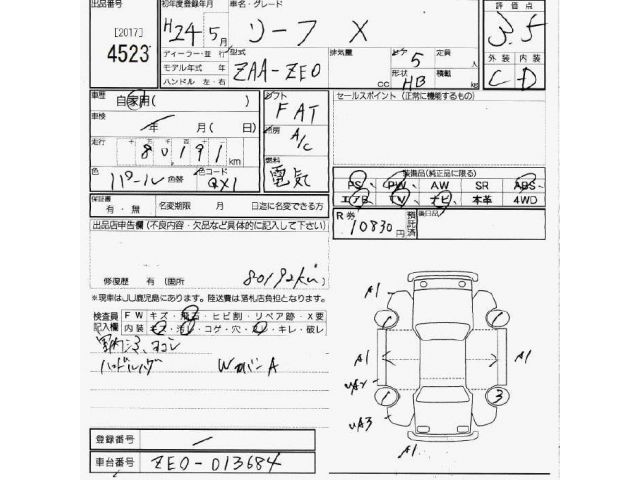 出品番号
[2017]
4523
初年度登録年月
H24年5月
車名・グレード
リーフ X
評価点
3.5
ディーラー・並行
モデル年式 年
ハンドル 左・右
型式
ZAA-ZE0
排気量
CC
ドア 5
定員 人
形状 HB
積載 kg
外装 内装
C D
車歴
自家用( )
シフト
FAT
セールスポイント (正常に機能するもの)
車検
年 月( 日)
冷房
A/C
走行
80191 km
色
パール
色替
色コード
QX1
燃料
電気
装備品(純正品に限る)
PS PW AW SR ABS
エアB TV ナビ 本革 4WD
保証書
有・無
名変期限 月 日迄に名変できる方
R券
10830円
預託済
後日品
出品店申告欄 (不良内容・欠品など具体的に記入して下さい)
修復歴 有 (箇所
80192km
※現車はJU鹿児島にあります。陸送費は落札店負担となります。
検査員記入欄
FW キズ・飛石・ヒビ割・リペア跡・X要
内装 キズ・汚レ・コゲ・穴・スレ・キレ・破レ
WカバーA
A1
A1
A1
A1
UA2
UA3
A1
1
1
1
3
登録番号
車台番号
ZE0-013684